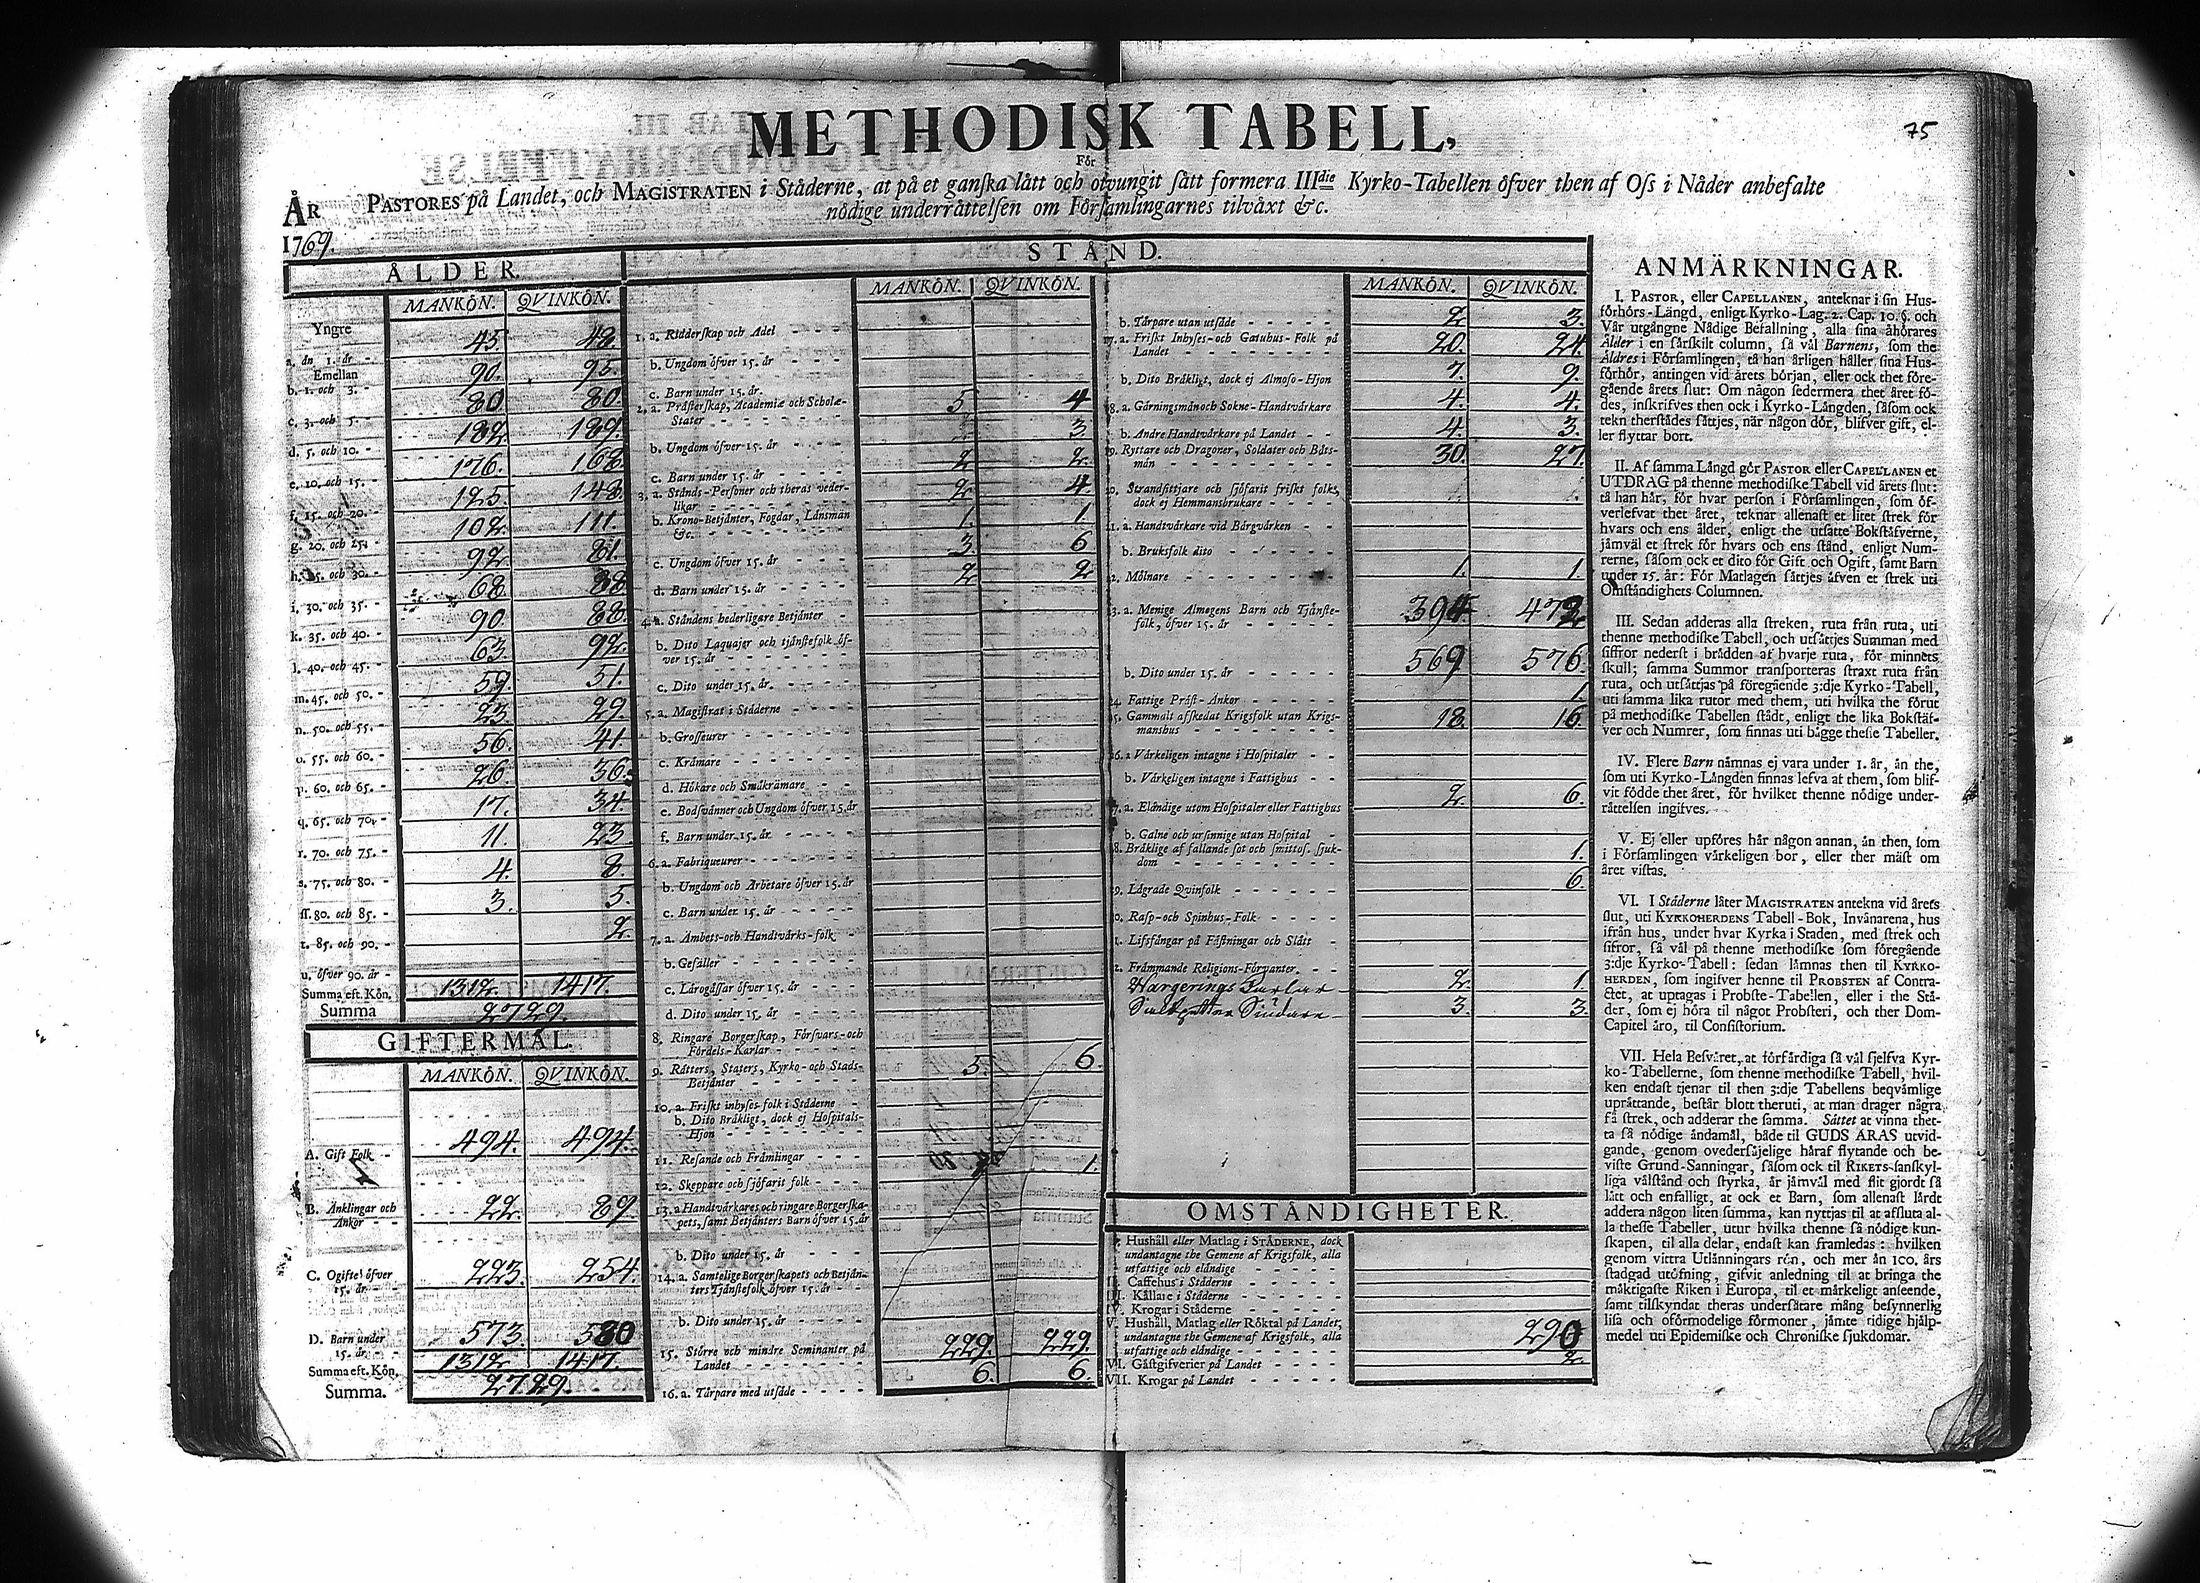 75
METHODISK TABELL,
För
PASTORES på Landet, och MAGISTRATEN i Städerne, at på et ganska lätt och otvungit sätt formera IIIdie Kyrko-Tabellen öfver then af Oss i Nåder anbefalte
nödige underrättelsen om Församlingarnes tilväxt &c.
ÅR
1769.
ÅLDER.
MANKÖN. QVINKÖN.
Yngre
a. än 1. år - 45. 48.
Emellan
b. 1. och 3. - 90. 95.
c. 3. och 5. - 80 80.
d. 5. och 10. - 182. 189.
e. 10. och 15. - 176. 168.
f. 15. och 20. - 125. 148.
g. 20. och 25. 102. 111.
h. 25. och 30. - 92. 81.
i. 30. och 35. - 68. 88
k. 35. och 40. - 90. 88.
l. 40. och 45. - 63. 92.
m. 45. och 50. - 59. 51.
n. 50. och 55. - 23. 29.
o. 55. och 60. - 56. 41
p. 60. och 65. - 26. 36.
q. 65. och 70. - 17. 34
r. 70. och 75. - 11. 23.
s. 75. och 80. - 4. 8.
ſſ. 80. och 85. - 3. 5.
t. 85. och 90. - 2.
u. öfver 90. år -
Summa eft. Kön. 1312. 1417.
Summa 2729.
GIFTERMÅL.
MANKÖN. QVINKÖN.
A. Gift Folk - 494. 494.
B. Änklingar och
Änkor - - 22. 89.
C. Ogifte öfver
15. år - - 223. 254.
D. Barn under
15. år - - 573. 580
Summa eft. Kön. 1312 1417.
Summa. 2729.
STÅND.
MANKÖN. QVINKÖN.
1. a. Ridderskap och Adel
b. Ungdom öfver 15. år
c. Barn under 15. år.
2. a. Prästerskap, Academiæ och Scholæ-
Stater 5. 4
b. Ungdom öfver 15. år 3.
c. Barn under 15. år 2 2.
3. a. Stånds-Personer och theras veder-
likar 2 4.
b. Krono-Betjänter, Fogdar, Länsmän
&c. 1. 1
c. Ungdom öfver 15. år 3. 6
d. Barn under 15. år 2 2
4. a. Ståndens hederligare Betjänter
b. Dito Laquajer och tjänstefolk öf-
ver 15. år
c. Dito under 15. år.
5. a. Magistrat i Städerne
b. Grosseurer
c. Krämare
d. Hökare och Småkrämare
e. Bodsvänner och Ungdom öfver 15. år
f. Barn under 15. år
6. a. Fabriqueurer
b. Ungdom och Arbetare öfver 15. år
c. Barn under 15. år
7. a. Ämbets-och Handtvärks-folk
b. Gesäller
c. Lärogåssar öfver 15. år
d. Dito under 15. år
8. Ringare Borgerskap, Försvars-och
Fördels-Karlar
9. Rätters, Staters, Kyrko-och Stads-
Betjänter 5. 6.
10. a. Friskt inhyses-folk i Städerne
b. Dito Bräkligt, dock ej Hospitals-
Hjon
11. Resande och Främlingar 1.
12. Skeppare och sjöfarit folk
13. a. Handtvärkares och ringare Borgerska-
pets, samt Betjänters Barn öfver 15. år
b. Dito under 15. år
14. a. Samtelige Borgerskapets och Betjän-
ters Tjänstefolk öfver 15. år
b. Dito under 15. år
15. Större och mindre Seminanter på
Landet 229. 229.
16. a. Tärpare med utsäde 6. 6.
MANKÖN. QVINKÖN.
b. Tärpare utan utsäde 2 3.
17. a. Friskt Inhyses-och Gatuhus-Folk på
Landet 20. 24.
b. Dito Bräkligt, dock ej Almoso-Hjon 7. 9.
18. a. Gärningsmän och Sokne-Handtvärkare 4. 4.
b. Andre Handtvärkare på Landet 4. 3.
19. Ryttare och Dragoner, Soldater och Båts-
män 30. 27.
20. Strandsittjare och sjöfarit friskt folk,
dock ej Hemmansbrukare
21. a. Handtvärkare vid Bärgvärken
b. Bruksfolk dito
22. Mölnare 1. 1.
23. a. Menige Almogens Barn och Tjänste-
folk, öfver 15. år 394 472
b. Dito under 15. år 569 576.
24. Fattige Präst-Änkor 1.
25. Gammalt afskedat Krigsfolk utan Krigs-
manshus 18. 16
26. a Värkeligen intagne i Hospitaler
b. Värkeligen intagne i Fattighus
27. a. Eländige utom Hospitaler eller Fattighus 2. 6.
b. Galne och ursinnige utan Hospital
28. Bräklige af fallande sot och smittos. sjuk-
dom 1.
29. Lägrade Qvinfolk 6.
30. Rasp-och Spinhus-Folk
31. Lifsfångar på Fästningar och Slått
32. Främmande Religions-Förvanter
2. 1.
3. 3.
OMSTÄNDIGHETER.
I. Hushåll eller Matlag i STÄDERNE, dock
undantagne the Gemene af Krigsfolk, alla
utfattige och eländige
II. Caffehus i Städerne
III. Källare i Städerne
IV. Krogar i Städerne
V. Hushåll, Matlag eller Röktal på Landet,
undantagne the Gemene af Krigsfolk, alla
utfattige och eländige 290
VI. Gästgifverier på Landet 2.
VII. Krogar på Landet
ANMÄRKNINGAR.
I. PASTOR, eller CAPELLANEN, anteknar i sin Hus-
förhörs-Längd, enligt Kyrko-Lag. 2. Cap. 10. §. och
Vår utgångne Nådige Befallning, alla sina åhörares
Ålder i en särskilt column, så väl Barnens, som the
Äldres i Församlingen, tå han årligen håller sina Hus-
förhör, antingen vid årets början, eller ock thet före-
gående årets slut: Om någon sedermera thet året fö-
des, inskrifves then ock i Kyrko-Längden, såsom ock
tekn therstädes sättjes, när någon dör, blifver gift, el-
ler flyttar bort.
II. Af samma Längd gör PASTOR eller CAPELLANEN et
UTDRAG på thenne methodiske Tabell vid årets slut:
tå han här, för hvar person i Församlingen, som öf-
verlefvat thet året, teknar allenast et litet strek för
hvars och ens ålder, enligt the utsatte Bokstäfverne,
jämväl et strek för hvars och ens stånd, enligt Num-
rerne, såsom ock et dito för Gift och Ogift, samt Barn
under 15. år: För Matlagen sättjes äfven et strek uti
Omständighets Columnen.
III. Sedan adderas alla streken, ruta från ruta, uti
thenne methodiske Tabell, och utsättjes Summan med
siffror nederst i brädden af hvarje ruta, för minnets
skull; samma Summor transporteras straxt ruta från
ruta, och utsättjas på föregående 3:dje Kyrko-Tabell,
uti samma lika rutor med them, uti hvilka the förut
på methodiske Tabellen städt, enligt the lika Bokstäf-
ver och Numrer, som finnas uti bägge thesse Tabeller.
IV. Flere Barn nämnas ej vara under 1. år, än the,
som uti Kyrko-Längden finnas lefva at them, som blif-
vit födde thet året, för hvilket thenne nödige under-
rättelsen ingifves.
V. Ej eller upföres här någon annan, än then, som
i Församlingen värkeligen bor, eller ther mäst om
året vistas.
VI. I Städerne låter MAGISTRATEN antekna vid årets
slut, uti KYRKOHERDENS Tabell-Bok, Invånarena, hus
ifrån hus, under hvar Kyrka i Staden, med strek och
sifror, så väl på thenne methodiske som föregående
3:dje Kyrko-Tabell: sedan lämnas then til KYRKO-
HERDEN, som ingifver henne til PROBSTEN af Contra-
ctet, at uptagas i Probste-Tabellen, eller i the Stä-
der, som ej höra til något Probsteri, och ther Dom-
Capitel äro, til Consistorium.
VII. Hela Besväret, at förfärdiga så väl sjelfva Kyr-
ko-Tabellerne, som thenne methodiske Tabell, hvil-
ken endast tjenar til then 3:dje Tabellens beqvämlige
uprättande, består blott theruti, at man drager några
få strek, och adderar the samma. Sättet at vinna thet-
ta så nödige ändamål, både til GUDS ÄRAS utvid-
gande, genom ovedersäjelige häraf flytande och be-
viste Grund-Sanningar, såsom ock til RIKETS sanskyl-
liga välstånd och styrka, är jämväl med flit gjordt så
lätt och enfalligt, at ock et Barn, som allenast lärdt
addera någon liten summa, kan nyttjas til at afsluta al-
la thesse Tabeller, utur hvilka thenne så nödige kun-
skapen, til alla delar, endast kan framledas: hvilken
genom vittra Utlänningars rön, och mer än 100. års
stadgad utöfning, gifvit anledning til at bringa the
mäktigaste Riken i Europa, til et märkeligt anseende,
samt tilskyndat theras undersåtare mång besynnerlig
lisa och oförmodelige förmoner, jämte tidige hjälp-
medel uti Epidemiske och Chroniske sjukdomar.